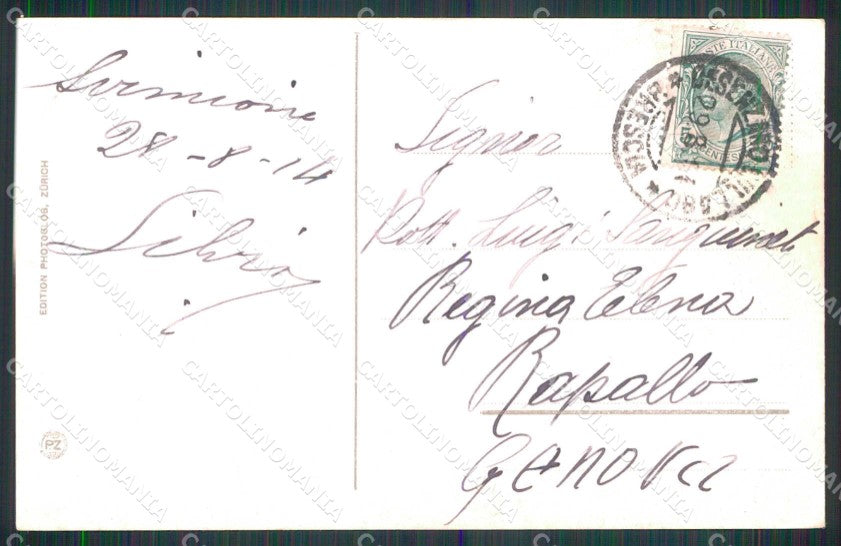 Sirmione
28-8-14
Silvio
EDITION PHOTOGLOB, ZÜRICH
PZ
POSTE ITALIANE
DESENZANO SUL LAGO
BRESCIA
29.8.14
Signor
Dott. Luigi Sanguineti
Regina Elena
Rapallo
Genova
CARTOLINOMANIA